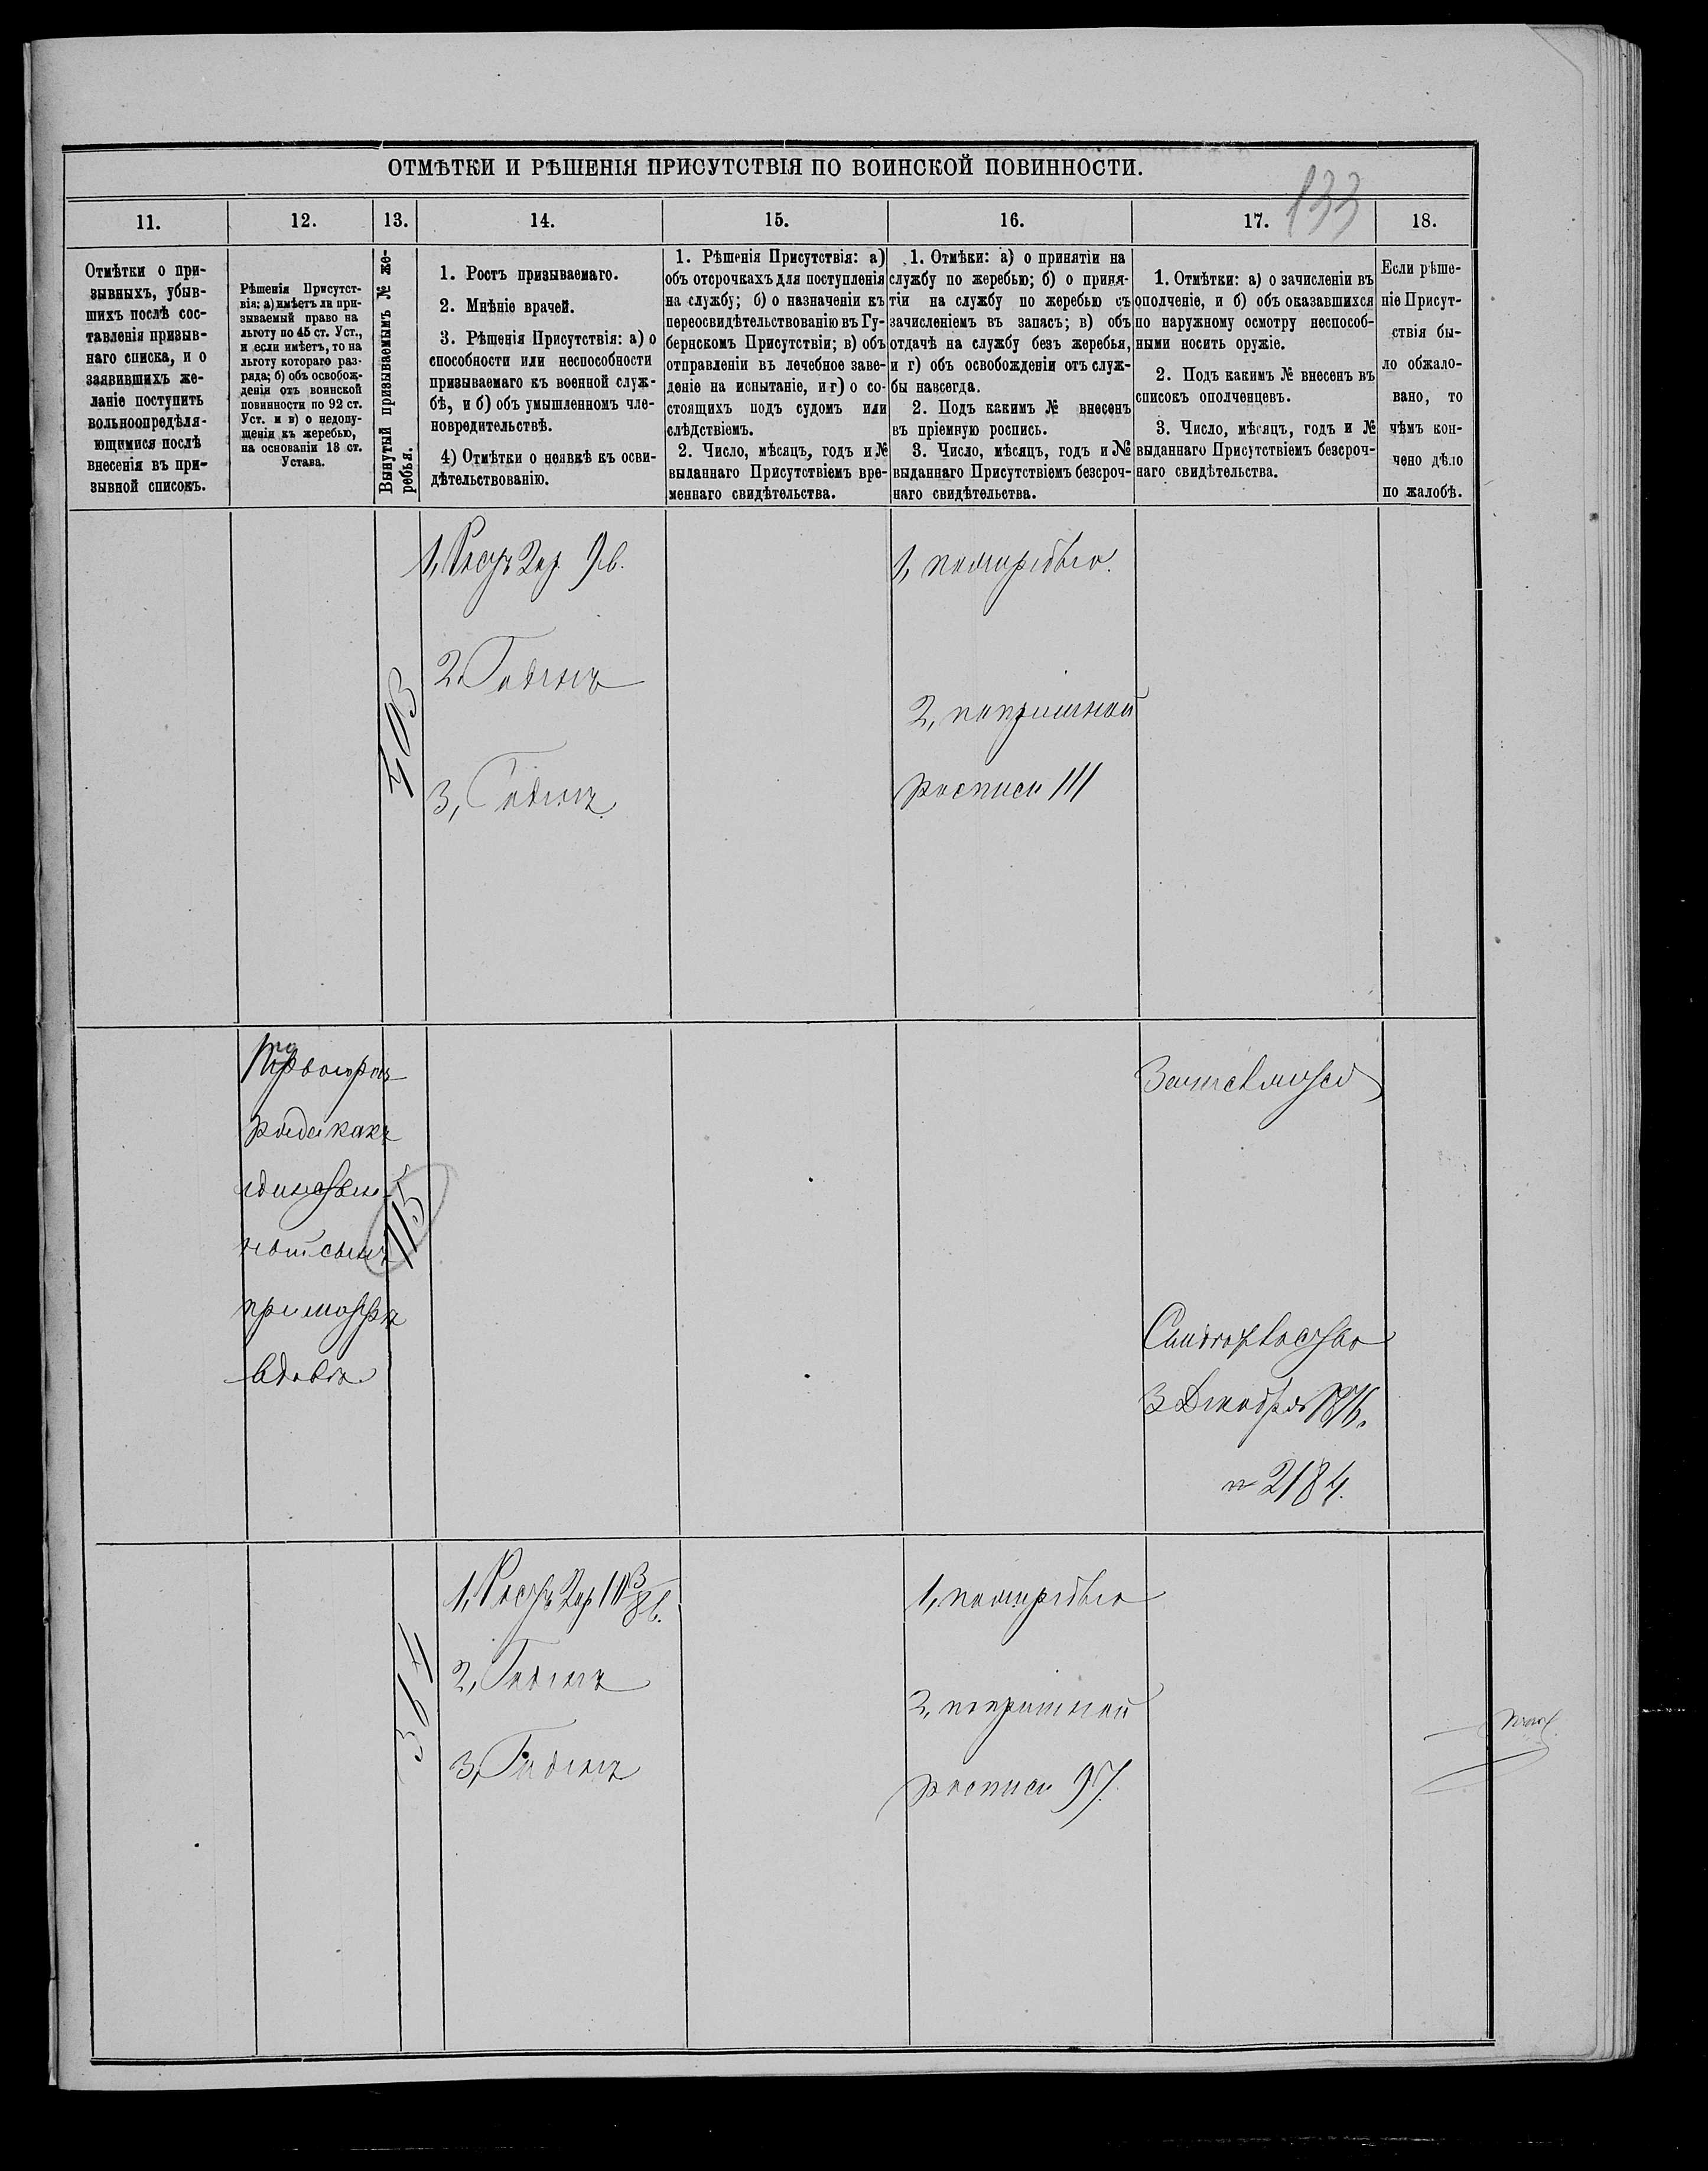 ОТМѢТКИ И РѢШЕНІЯ ПРИСУТСТВІЯ ПО ВОИНСКОЙ ПОВИННОСТИ.
133
11.
12.
13.
14.
15.
16.
17.
18.
Отмѣтки о при-
зывныхъ, убыв-
шихъ послѣ сос-
тавленія призыв-
наго списка, и о
заявившихъ же-
ланіе поступить
вольноопредѣля-
ющимися послѣ
внесенія въ при-
зывной списокъ.
Рѣшенія Присутст-
вія: а) имѣетъ ли при-
зываемый право на
льготу по 45 ст. Уст.,
и если имѣетъ, то на
льготу котораго раз-
ряда; б) объ освобож-
деніи отъ воинской
повинности по 92 ст.
Уст. и в) о недопу-
щеніи къ жеребью,
на основаніи 13 ст.
Устава.
Вынутый призываемымъ № же-
ребья.
1. Ростъ призываемаго.
2. Мнѣніе врачей.
3. Рѣшенія Присутствія: а) о
способности или неспособности
призываемаго къ военной служ-
бѣ, и б) объ умышленномъ чле-
новредительствѣ.
4) Отмѣтки о неявкѣ къ осви-
дѣтельствованію.
1. Рѣшенія Присутствія: а)
объ отсрочкахъ для поступленія
на службу; б) о назначеніи къ
переосвидѣтельствованію въ Гу-
бернскомъ Присутствіи; в) объ
отправленіи въ лечебное заве-
деніе на испытаніе, и г) о со-
стоящихъ подъ судомъ или
слѣдствіемъ.
2. Число, мѣсяцъ, годъ и №
выданнаго Присутствіемъ вре-
меннаго свидѣтельства.
1. Отмѣки: а) о принятіи на
службу по жеребью; б) о приня-
тіи на службу по жеребью съ
зачисленіемъ въ запасъ; в) объ
отдачѣ на службу безъ жеребья,
и г) объ освобожденіи отъ служ-
бы навсегда.
2. Подъ какимъ № внесенъ
въ пріемную роспись.
3. Число, мѣсяцъ, годъ и №
выданнаго Присутствіемъ безсроч-
наго свидѣтельства.
1. Отмѣтки: а) о зачисленіи въ
ополченіе, и б) объ оказавшихся
по наружному осмотру неспособ-
ными носить оружіе.
2. Подъ какимъ № внесенъ въ
списокъ ополченцевъ.
3. Число, мѣсяцъ, годъ и №
выданнаго Присутствіемъ безсроч-
наго свидѣтельства.
Если рѣше-
ніе Присут-
ствія бы-
ло обжало-
вано, то
чѣмъ кон-
чено дѣло
по жалобѣ.
403
1, Ростъ 2 ар. 9 в.
2. Годенъ
3, Годенъ
1, по жеребью.
2, по пріемной
росписи 111
115
ряда какъ
единствен-
ный сынъ
при матери
вдовѣ.
Свидѣтельство
3 Декабря 1876.
№ 2184.
364
1, Ростъ 2 ар 10 3/8 в.
2, Годенъ
3, Годенъ
1, по жеребью
2, по пріемной
росписи 97.